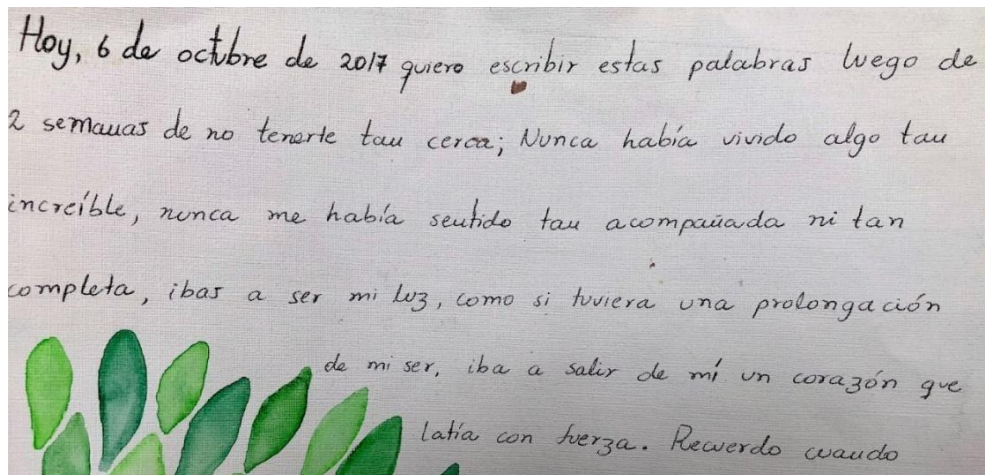 Hoy, 6 de octubre de 2017 quiero escribir estas palabras luego de
2 semanas de no tenerte tan cerca; Nunca había vivido algo tan
increíble, nunca me había sentido tan acompañada ni tan
completa, ibas a ser mi luz, como si tuviera una prolongación
de mi ser, iba a salir de mí un corazón que
latía con fuerza. Recuerdo cuando